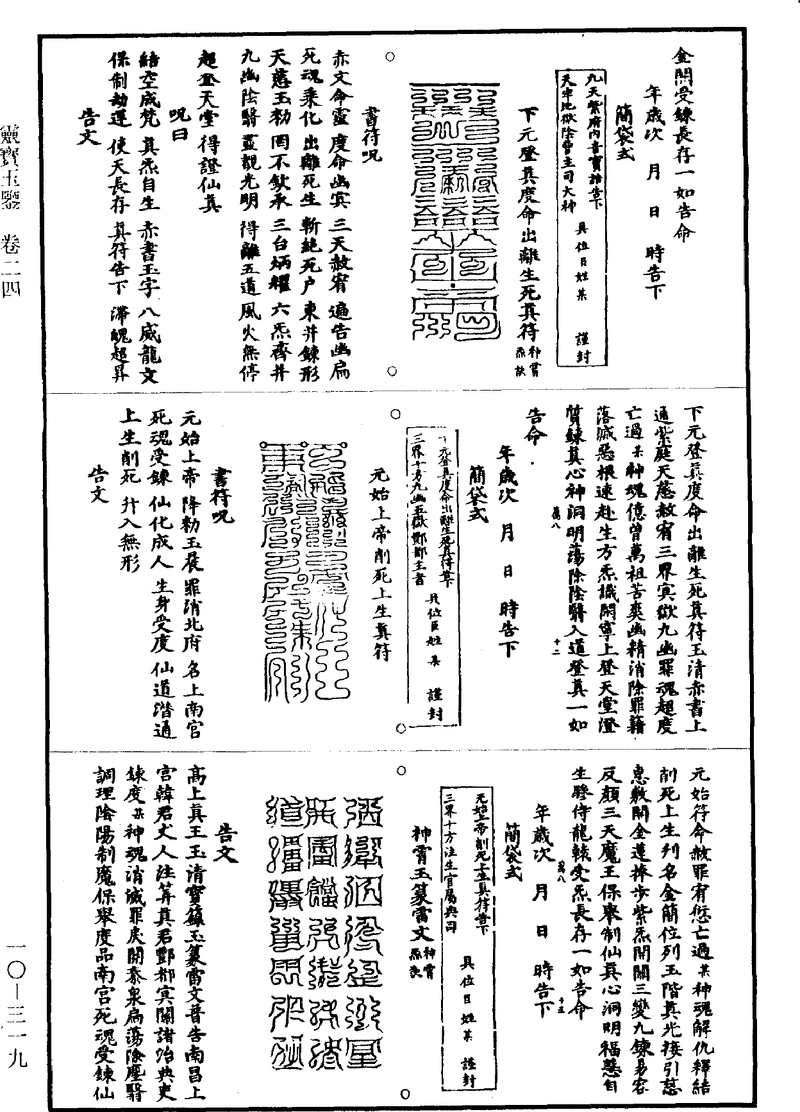 金闕受鍊長存一如告命
年歲次 月 日 時告下
簡袋式
九天紫府內音寶誥告下
天牢地獄陰曹主司大神
具位臣姓某 謹封
下元登真度命出離生死真符
書符呪
赤文命靈 度命幽冥 三天赦宥 遍告幽扃
死魂乘化 出離死生 斬絕死户 東井鍊形
天慈玉勑 罔不欽承 三台炳耀 六炁齊并
九幽陰翳 盡覩光明 得離五道 風火無停
超登天堂 得證仙真
呪曰
結空成梵 真炁自生 赤書玉字 八威龍文
保制劫運 使天長存 真符告下 滯魄超昇
告文
下元登真度命出離生死真符玉清赤書上
通紫庭天慈赦宥三界冥獄九幽罪魂超度
亡過某神魂億曾萬祖苦爽幽精消除罪籍
落滅惡根速赴生方炁識開寧上登天堂澄
質鍊真心神洞明蕩除陰翳入道登真一如
告命
萬八
十二
年歲次 月 日 時告下
簡袋式
下元登真度命出離生死真符告下
三界十方九幽五嶽酆都主者
具位臣姓某 謹封
元始上帝削死上生真符
書符呪
元始上帝 降勑玉晨 罪消北府 名上南宮
死魂受鍊 仙化成人 生身受度 仙道潛通
上生削死 升入無形
告文
元始符命赦罪宥愆亡過某神魂解仇釋結
削死上生列名金簡位列玉階真光接引慈
惠敷開金蓮捧步紫炁開關三變九鍊易容
反顏三天魔王保舉制仙真心洞明福慧自
生登侍龍轅受炁長存一如告命
萬八
十三
年歲次 月 日 時告下
簡袋式
元始上帝削死上生真符告下
三界十方注生官屬典司
具位臣姓某 謹封
神霄玉篆雷文
告文
高上真王玉清寶籙玉篆雷文普告南昌上
宮韓君丈人注筭真君酆都冥關諸治典吏
鍊度某神魂消滅罪戾開泰泉扃蕩陰塵翳
調理陰陽制魔保舉度品南宮死魂受鍊仙
靈寶玉鑒 卷二四
一〇—三一九